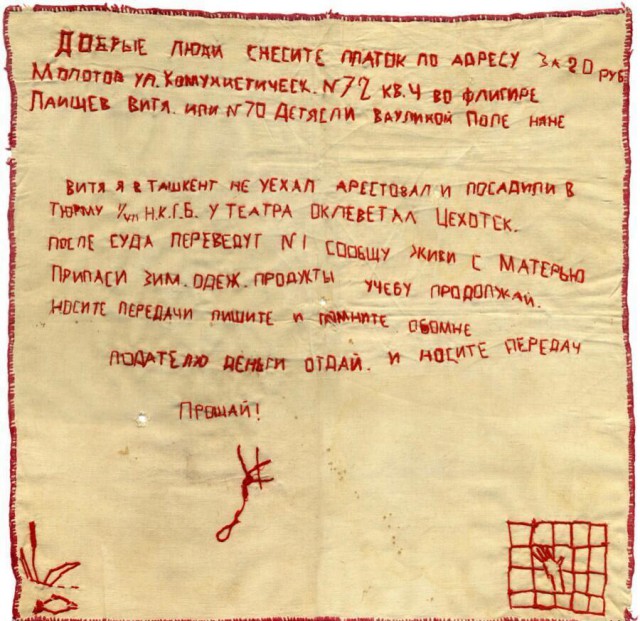 ДОБРЫЕ ЛЮДИ СНЕСИТЕ ПЛАТОК ПО АДРЕСУ ЗА 20 РУБ
МОЛОТОВ УЛ. КОМУНИСТИЧЕСК. N 72 КВ. Ч ВО ФЛИГИРЕ
ЛАИЩЕВ ВИТЯ. ИЛИ N 70 ДЕТЯСЛИ ВАУЛИНОЙ ПОЛЕ НЯНЕ
ВИТЯ Я В ТАШКЕНТ НЕ УЕХАЛ АРЕСТОВАЛ И ПОСАДИЛИ В
ТЮРМУ Н.К.Г.Б. У ТЕАТРА ОКЛЕВЕТАЛ ЦЕХОТСК.
ПОСЛЕ СУДА ПЕРЕВЕДУТ N 1 СООБЩУ ЖИВИ С МАТЕРЬЮ
ПРИПАСИ ЗИМ. ОДЕЖ. ПРОДУКТЫ УЧЕБУ ПРОДОЛЖАЙ.
НОСИТЕ ПЕРЕДАЧИ ПИШИТЕ И ПОМНИТЕ ОБОМНЕ
ПОДАТЕЛЮ ДЕНЬГИ ОТДАЙ. И НОСИТЕ ПЕРЕДАЧ
ПРОЩАЙ!